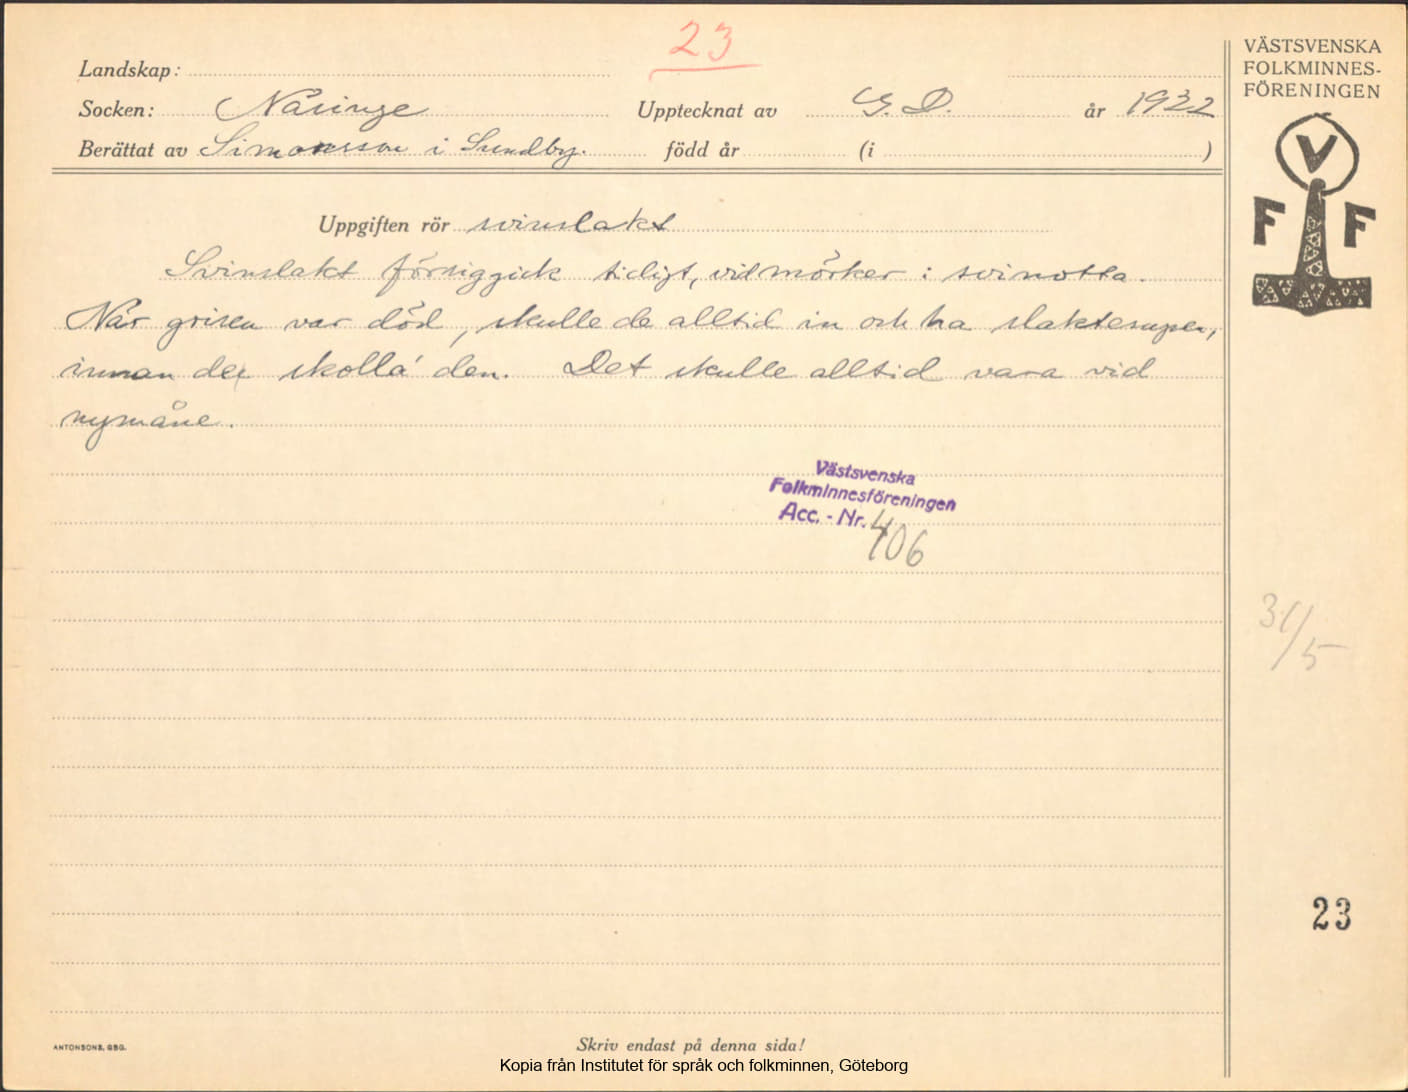 23
Landskap:
Socken: Näsinge Upptecknat av G. D. år 1932
Berättat av Simonsson i Sundby. född år (i )
VÄSTSVENSKA
FOLKMINNES-
FÖRENINGEN
V
F F
Uppgiften rör svinslakt
Svinslakt försiggick tidigt, vid mörker i svinotta.
När grisen var död, skulle de alltid in och ha slaktesupen,
innan de skolla' den. Det skulle alltid vara vid
nymåne.
Västsvenska
Folkminnesföreningen
Acc. - Nr. 406
31/5
23
ANTONSONS, GBG.
Skriv endast på denna sida!
Kopia från Institutet för språk och folkminnen, Göteborg